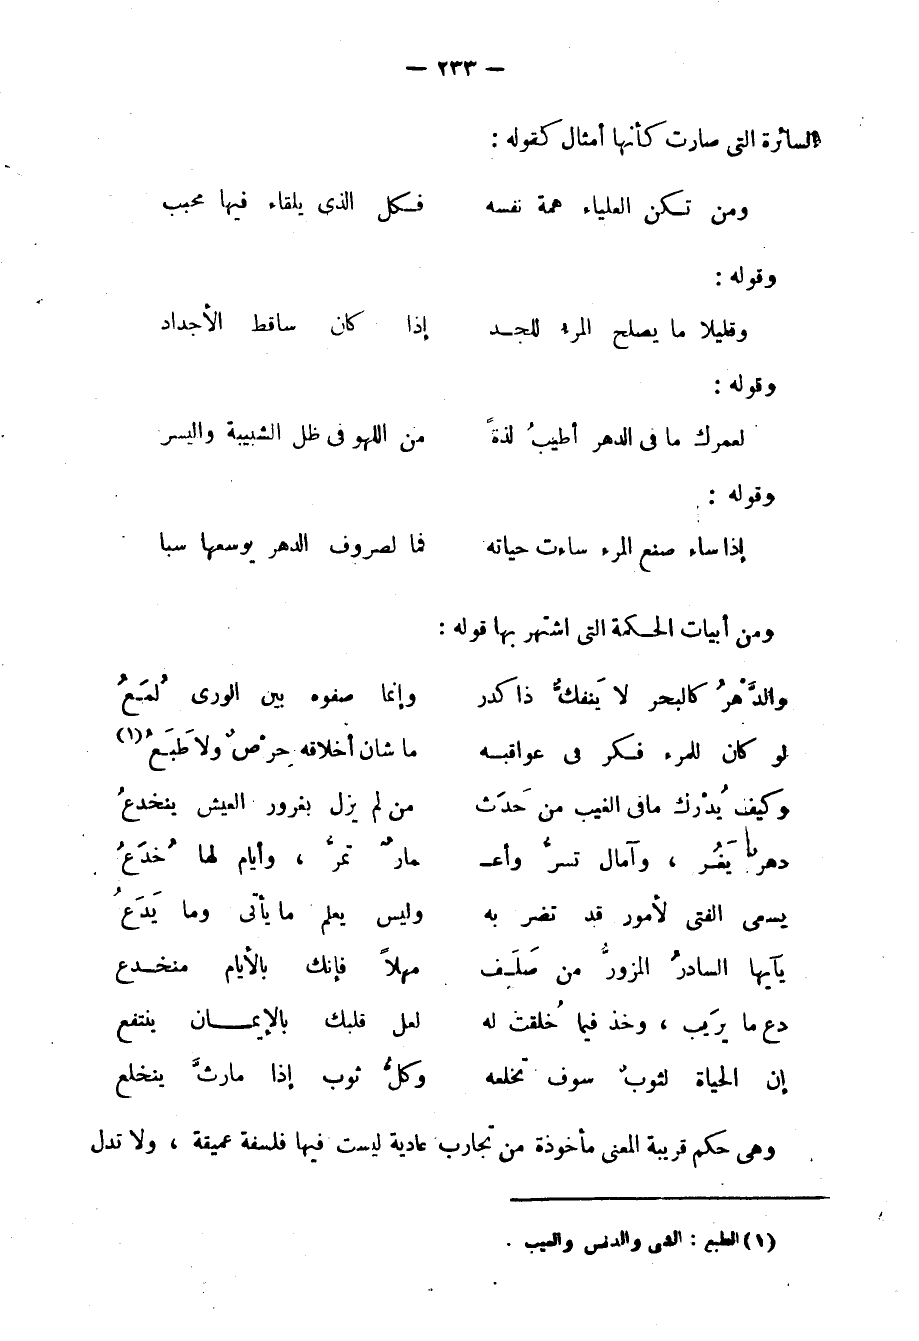 — ٢٣٣ —
السائرة التى صارت كأنها أمثال كقوله :
ومن تكن العلياء همة نفسه فكل الذى يلقاء فيها محبب
وقوله :
وقليلا ما يصلح المرء للجد إذا كان ساقط الأجداد
وقوله :
لعمرك ما فى الدهر أطيبُ لذةً من اللهو فى ظل الشبيبة واليسر
وقوله :
إذا ساء صنع المرء ساءت حياته فما لصروف الدهر يوسعها سبا
ومن أبيات الحكمة التى اشتهر بها قوله :
والدَّهْرُ كالبحر لا يَنفكُّ ذا كدر وإنما صفوه بين الورى لُمَعُ
لو كان للمرء فكر فى عواقبه ما شان أخلاقه حرْصٌ ولا طَبَعُ(١)
وكيف يُدْرك مافى الغيب من حَدَث من لم يزل بغرور العيش ينخدعُ
دهرٌ يَغُر ، وآمال تسرُّ وأعـ ـمارٌ تمرُّ ، وأيام لها خُدَعُ
يسمى الفتى لأمور قد تضر به وليس يعلم ما يأتى وما يَدَعُ
يأيها السادرُ المزورُّ من صَلَف مهلاً فإنك بالأيام منخدع
دع ما يَريب ، وخذ فيما خُلقت له لعل قلبك بالإيمان ينتفع
إن الحياة لثوبٌ سوف تخلعه وكلُّ ثوب إذا مارثَّ ينخلع
وهى حكم قريبة المعنى مأخوذة من تجارب عادية ليست فيها فلسفة عميقة ، ولا تدل
(١) الطبع : الشى والدنس والعيب .